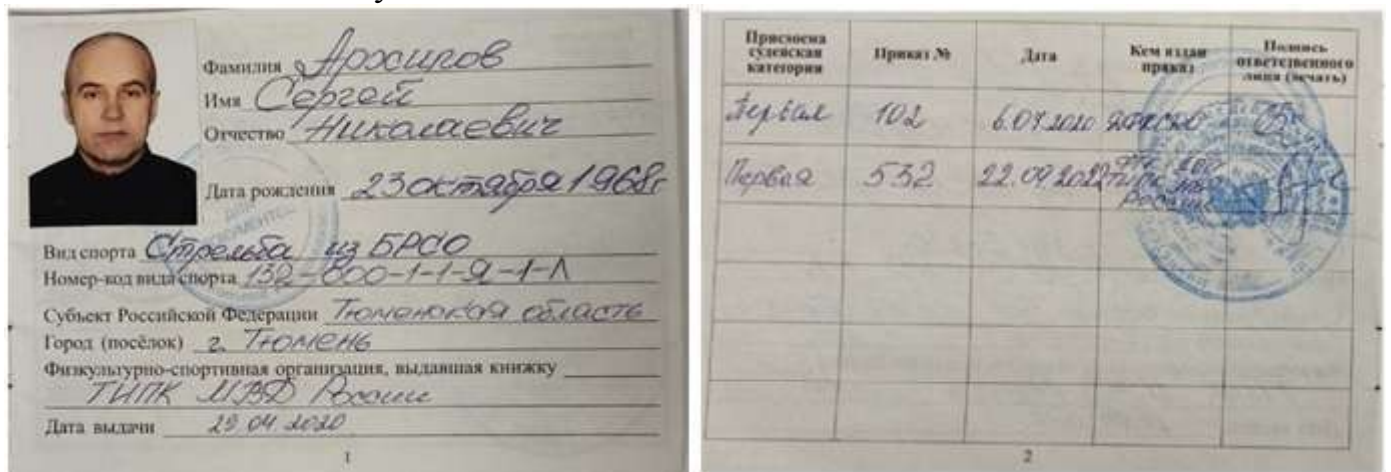 Фамилия
Имя Сергей
Отчество Николаевич
Дата рождения 23 октября 1968г
Вид спорта Стрельба из БРСО
Номер-код вида спорта 132-000-1-1-Я-1-Л
Субъект Российской Федерации Тюменская область
Город (посёлок) г. Тюмень
Физкультурно-спортивная организация, выдавшая книжку
ТИПК МВД России
Дата выдачи 29 04 2020
1
Присвоена судейская категория Приказ № Дата Кем издан приказ Подпись ответственного лица (печать)
Первая 102 6.07.2020
Первая 532 22.09.2022 России
2